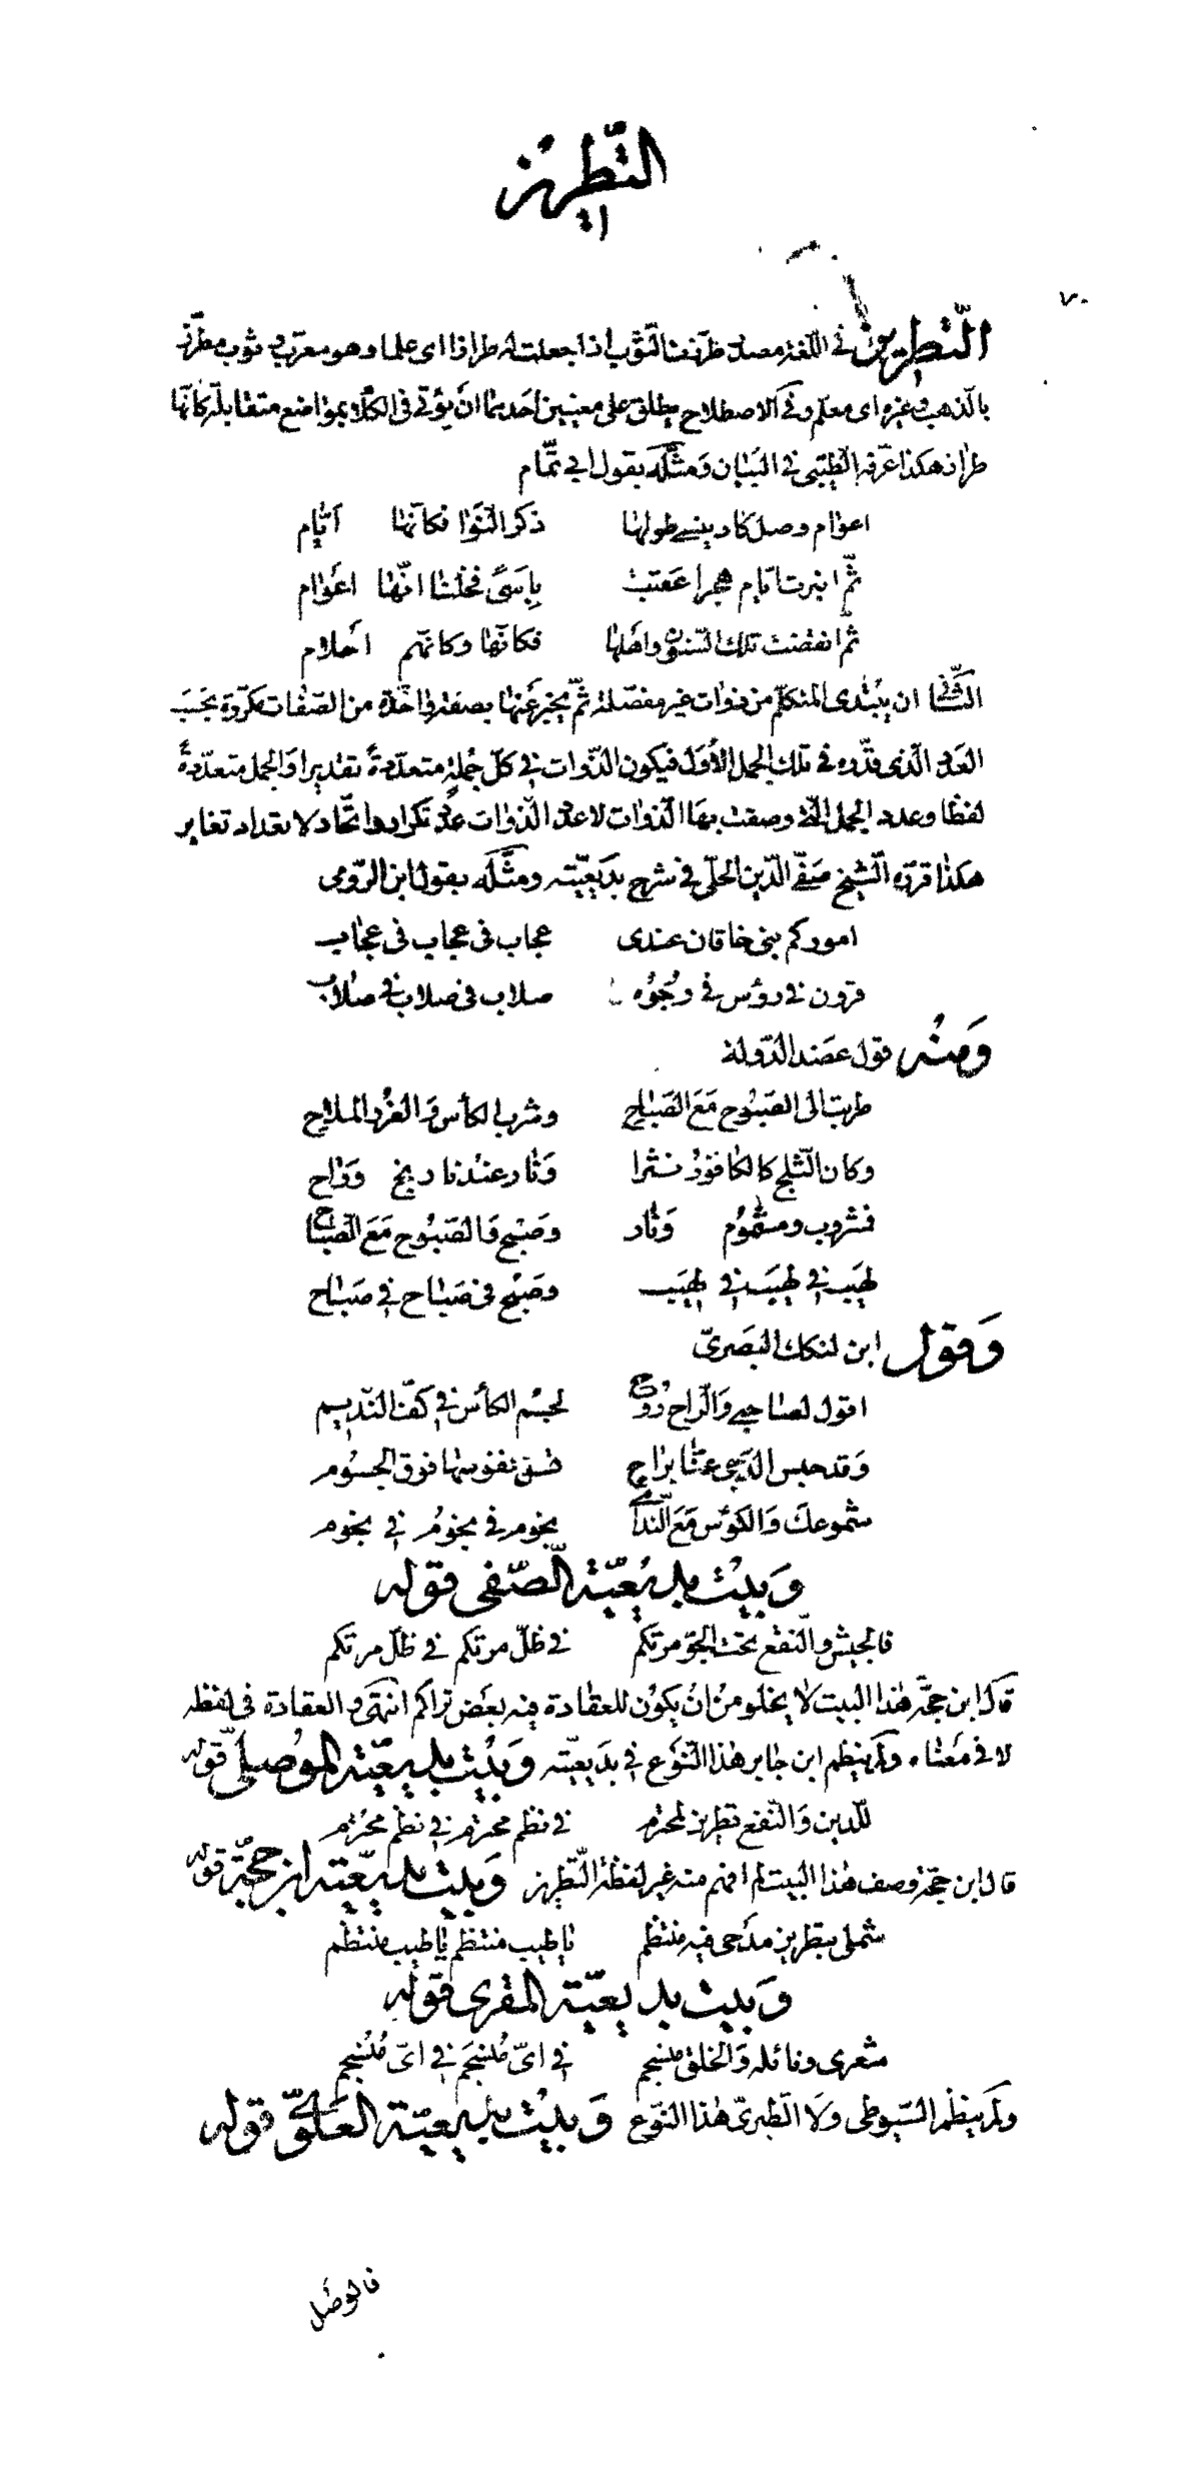 التّطريز
التّطريز في اللّغة مصدر طرّزت الثّوب اذا جعلت له طرازا اى علما وهو معرّب و ثوب مطرّز
بالذهب و غيره اى معلم و في الاصطلاح يطلق على معنيين احدهما ان يؤتى فى الكلام بمواضع متقابلة كانّها
طراز هكذا عرّفه الطّيبى في التبيان ومثّله بقول ابي تمّام
اعوام وصل كاد ينسى طولها ذكر النّوا فكانّها ايّام
ثمّ انبرت ايّام هجر اعقبت باسىً فخلنا انّها اعوام
ثمّ انقضت تلك السّنون واهلها فكانّها وكانّهم احلام
الثّانى ان يبتدى المتكلّم من ذوات غير مفصّلة ثمّ يخبر عنها بصفة واحدة من الصّفات مكرّرة بحسَب
العدد الّذى قدّره فى تلك الجمل الأول فيكون الذّوات في كلّ جملةٍ متعدّدةً تقديرا والجمل متعدّدةً
لفظا وعدد الجمل الّتى وصفت بها الذّوات لا عدد الذّوات عدد تكرار واتّحاد لا تعداد تغاير
هكذا قرّره الشّيخ صفىّ الدّين الحلّى فى شرح بديعيّته ومثّله بقول ابن الرّومى
اموركم بنى خاقان عندى عجاب فى عجاب فى عجاب
قرون في رؤس في وجوه صلاب فى صلاب في صلاب
ومنه قول عضد الدّولة
طربت الى الصّبوح مَعَ الصّباح وشرب الكأس وَالغرر الملاح
وكان الثّلج كالكافور نثرا وَنار عندنا ريخ وراح
فمشروب ومشموم وَنار وصبح وَالصّبوح مَعَ الصّباح
لهيب في لهيب في لهيب وصبح فى صباح في صباح
وقول ابن لنكك البصرىّ
اقول لصاحبي وَالرّاح روح لجسم الكأس في كفّ النّديم
وَقد حبس الدّجى عنّا براح تفوق الجسوم
شموعك وَالكؤس مَعَ النّدامى نجوم فى نجوم في نجوم
وبيت بديعيّة الصّفى قوله
فالجيش والنّقع تحت الجوّ مرتكم في ظلّ مرتكم في ظلّ مرتكم
قال ابن حجّة هذا البيت لا يخلو من ان يكون للعقادة فيه بعض تراكم انتهى والعقادة فى لفظه
لا فى معناه ولم ينظم ابن جابر هذا النّوع في بديعيّته وَبيت بديعيّة الموصلىّ قوله
للدين وَالنّفع تطريز لمحترم في نظم محترم في نظم محترم
قال ابن حجّة وصف هذا البيت لم افهم منه غير لفظة التّطريز وَبيت بديعيّة ابن حجّة قوله
شملى بتطريز مدحى فيه منتظم يا طيب منتظم يا طيب منتظم
وَبيت بديعيّة المقرى قوله
شعرى ونائله وَالخلق منسجم في اىّ منسجم في اىّ منسجم
ولم ينظم السّيوطى ولا الطبرىّ هذا النّوع وَبيت بديعيّة العلوىّ قوله
فالوصل